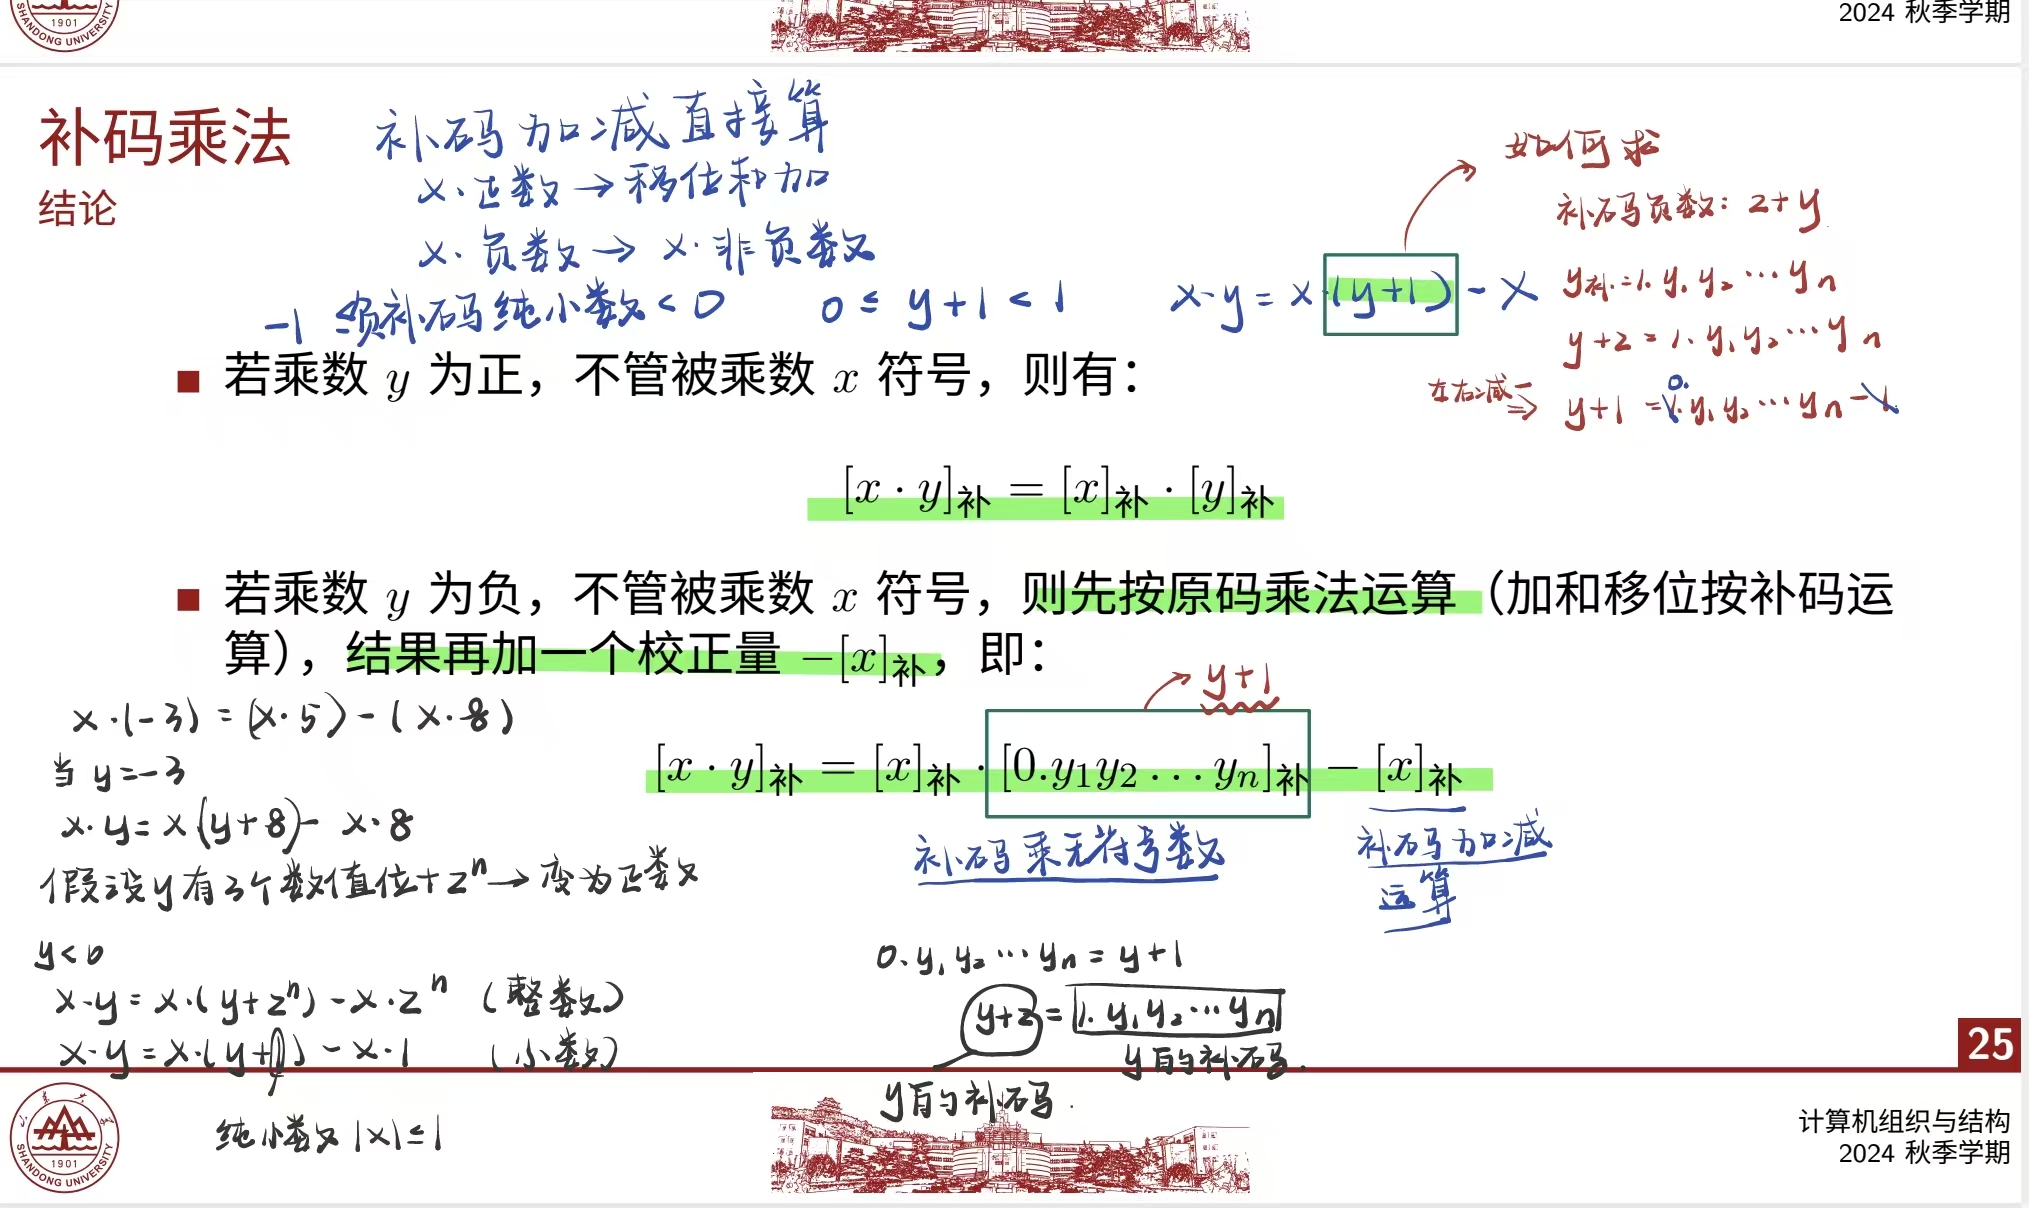 1901
SHANDONG UNIVERSITY
2024 秋季学期
补码乘法
结论
补码加减直接算
x·正数→移位和加
x·负数→x·非负数
-1≤负补码纯小数<0
0≤y+1<1
x·y=x·(y+1)-x
如何求
补码负数:2+y
y补=1.y₁y₂…yn
y+2=1.y₁y₂…yn
左右减一
⇒ y+1=1.y₁y₂…yn-1
0.
■ 若乘数 y 为正，不管被乘数 x 符号，则有：
[x · y]补 = [x]补 · [y]补
■ 若乘数 y 为负，不管被乘数 x 符号，则先按原码乘法运算（加和移位按补码运
算），结果再加一个校正量 −[x]补，即：
y+1
[x · y]补 = [x]补 · [0.y₁y₂ … yn]补 − [x]补
补码乘无符号数
补码加减
运算
x·(-3)=(x·5)-(x·8)
当y=-3
x·y=x(y+8)-x·8
假设y有3个数值位+2ⁿ→变为正数
y<0
x·y=x·(y+2ⁿ)-x·2ⁿ (整数)
x·y=x·(y+1)-x·1 (小数)
纯小数|x|≤1
0.y₁y₂…yn=y+1
y+2=1.y₁y₂…yn
y的补码.
y的补码.
25
1901
SHANDONG UNIVERSITY
计算机组织与结构
2024 秋季学期